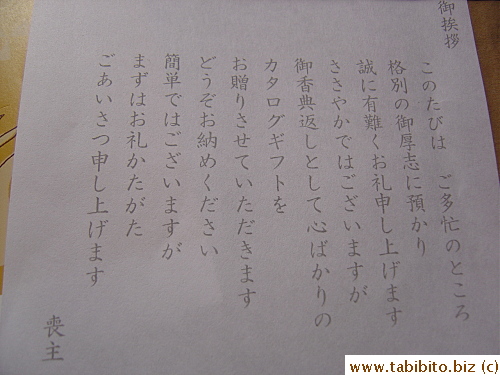 御挨拶
このたびは　ご多忙のところ
格別の御厚志に預かり
誠に有難くお礼申し上げます
ささやかではございますが
御香典返しとして心ばかりの
カタログギフトを
お贈りさせていただきます
どうぞお納めください
簡単ではございますが
まずはお礼かたがた
ごあいさつ申し上げます
喪主
www.tabibito.biz (c)